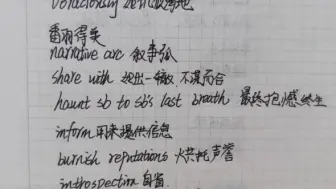 voraciously
番羽得矣
narrative arc 叙事弧
share with 不谋而合
haunt sb to sb's last breath 最终抱憾终生
inform 用来提供信息
burnish reputations 火共托声誉
introspection 自省